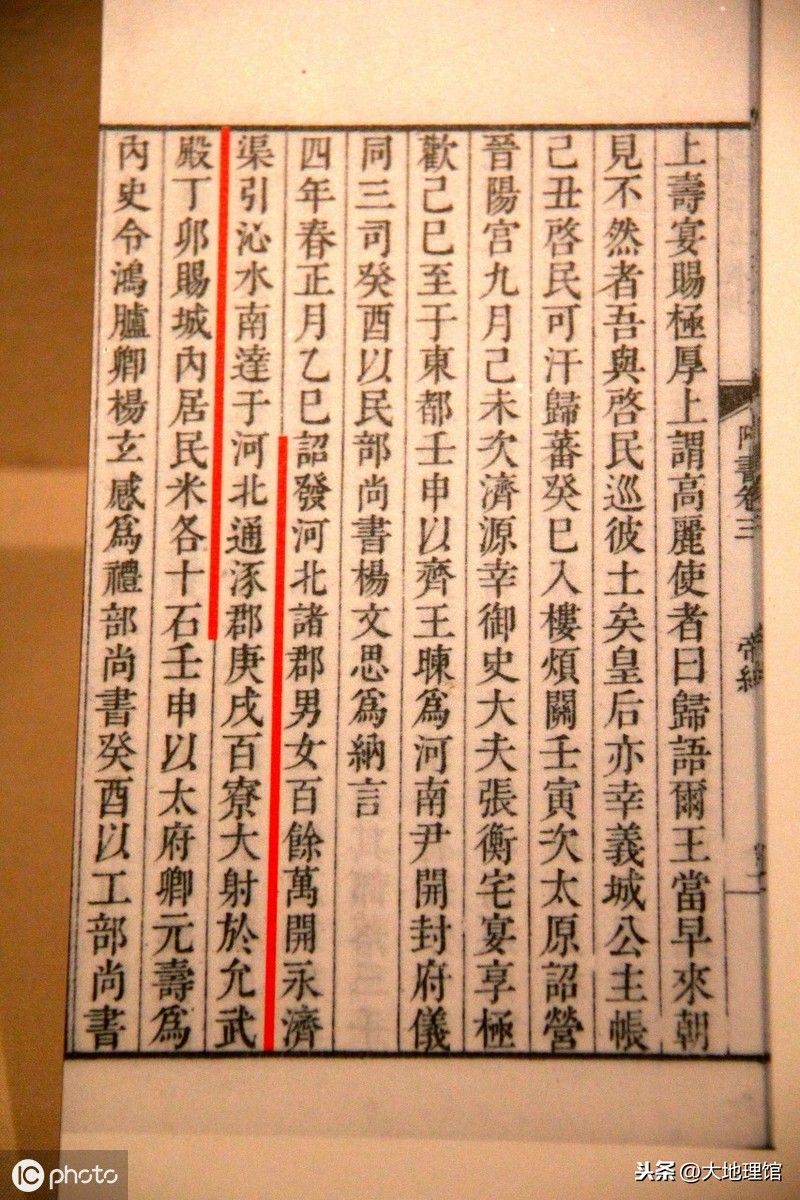 上壽宴賜極厚上謂高麗使者曰歸語爾王當早來朝
見不然者吾與啓民巡彼土矣皇后亦幸義城公主帳
己丑啓民可汗歸蕃癸巳入樓煩關壬寅次太原詔營
晉陽宮九月己未次濟源幸御史大夫張衡宅宴享極
歡己巳至于東都壬申以齊王暕爲河南尹開封府儀
同三司癸酉以民部尚書楊文思爲納言
四年春正月乙巳詔發河北諸郡男女百餘萬開永濟
渠引沁水南達于河北通涿郡庚戌百寮大射於允武
殿丁卯賜城內居民米各十石壬申以太府卿元壽爲
內史令鴻臚卿楊玄感爲禮部尚書癸酉以工部尚書
書卷三
帝紀
IC photo
头条@大地理馆